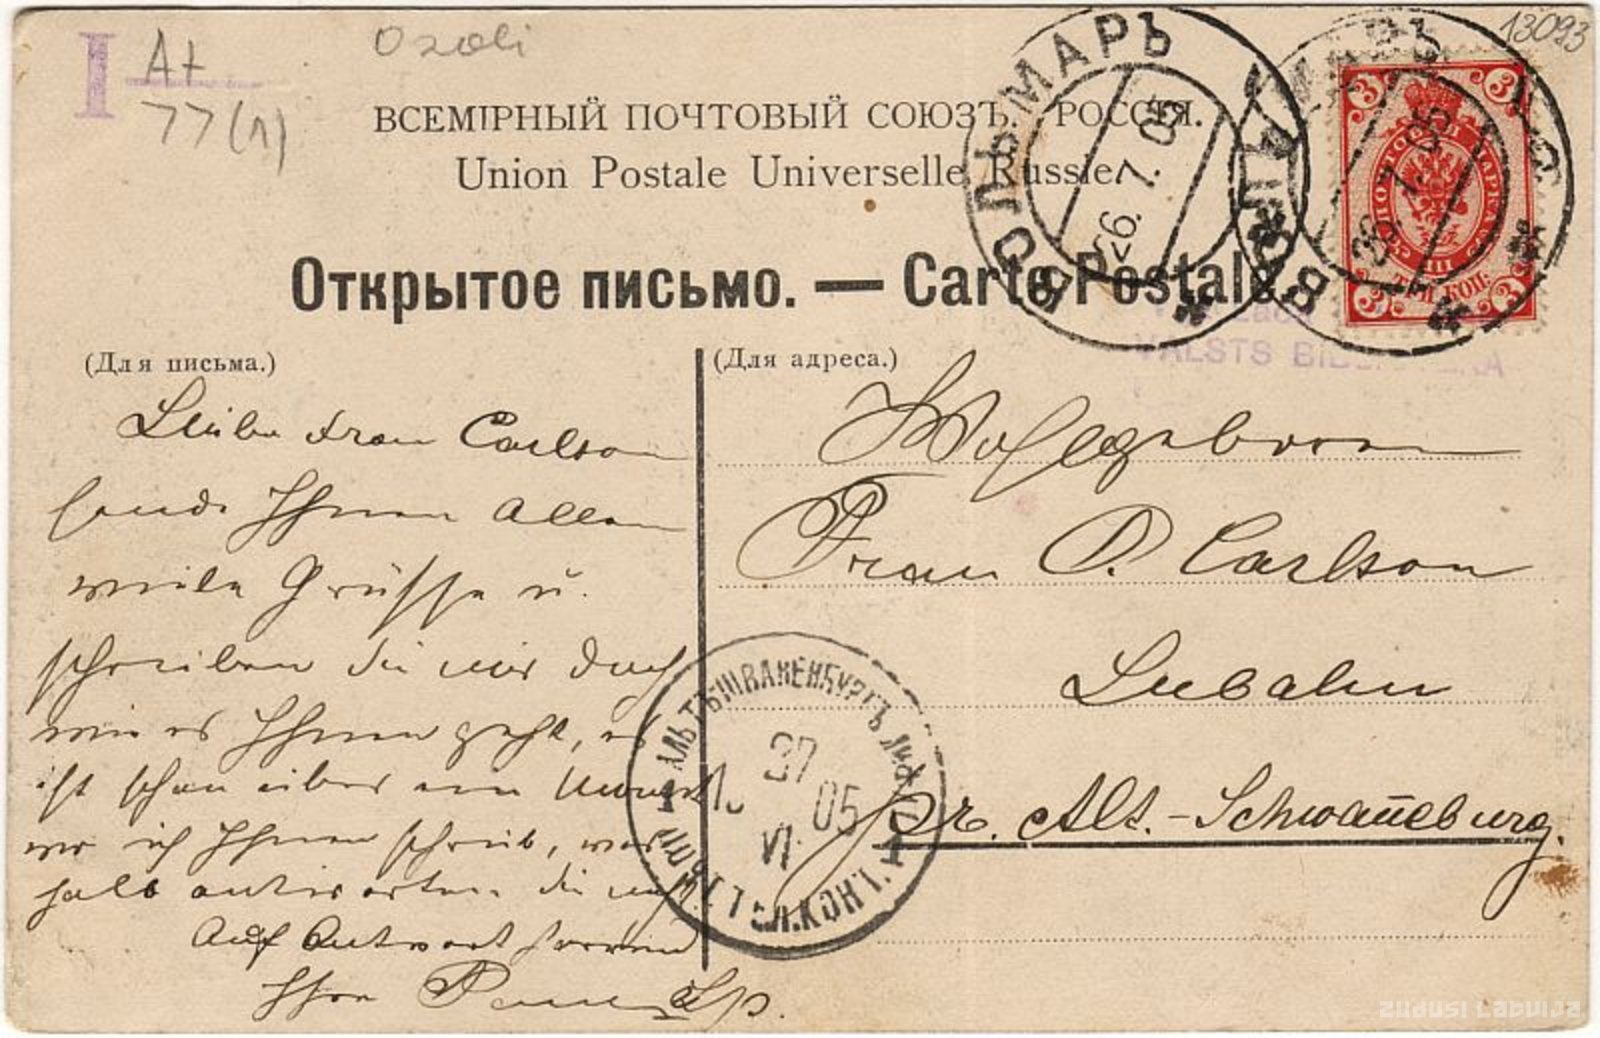 I At
77(1)
Ozoli
13093
ВСЕМІРНЫЙ ПОЧТОВЫЙ СОЮЗЪ. РОССІЯ.
Union Postale Universelle Russie
Открытое письмо. — Carte Postale
ВОЛЬМАРЪ
26.7.05
ВОЛЬМАРЪ
26.7.05
ПОЧТОВАЯ МАРКА
3 3 3 3
ТРИ КОП.
VALSTS BIBLIOTEKA
(Для письма.)
Liebe Frau Carlson
sende Ihnen Allen
viele Grüsse u.
schreiben Sie mir doch
wie es Ihnen geht, es
ist schon über ein Monat
wo ich Ihnen schrieb,
halb antworten Sie nicht.
Auf Antwort
Ihre
(Для адреса.)
Wohlgeboren
Frau P. Carlson
Lubahn
pr. Alt.-Schwaneburg.
АЛЬТЪ-ШВАНЕНБУРГЪ ЛИФЛ.
27 VI 05
ПОЧТ. ТЕЛ. КОНТ.
zudusi Latvija